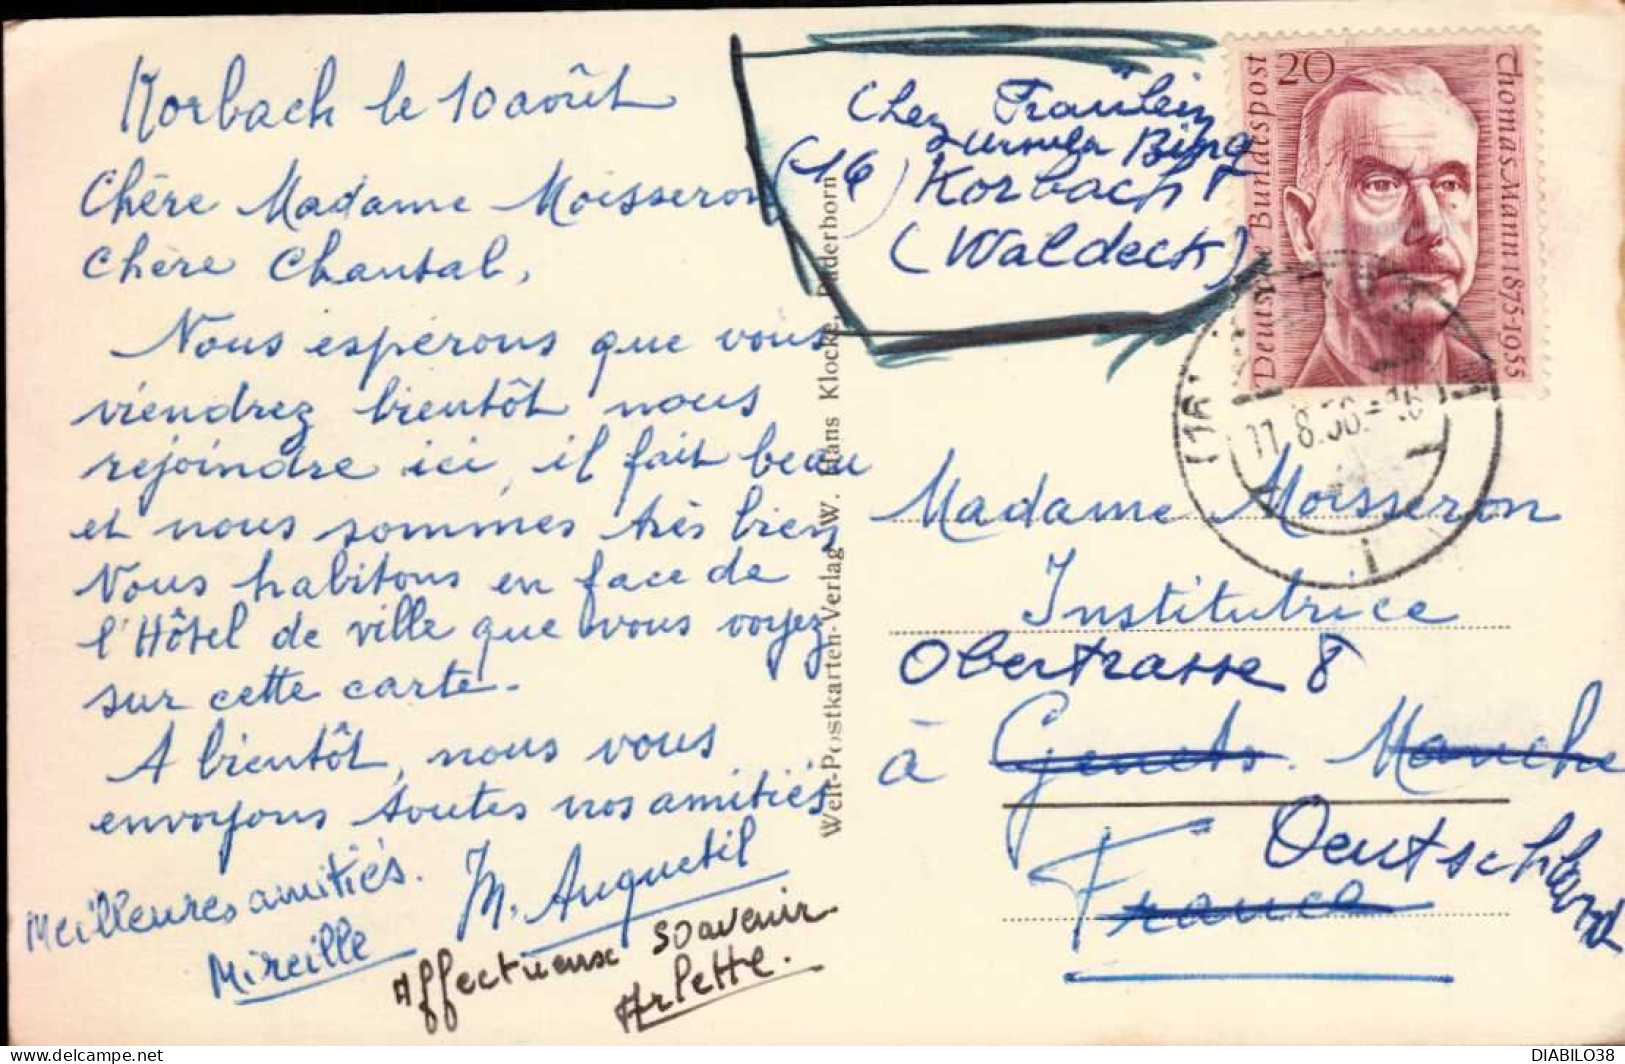 Korbach le 10 août
Chère Madame Moisseron
Chère Chantal,
Nous espérons que vous
viendrez bientôt nous
rejoindre ici, il fait beau
et nous sommes très bien
Nous habitons en face de
l'Hôtel de ville que vous voyez
sur cette carte.
A bientôt, nous vous
envoyons toutes nos amitiés
M. Anquetil
Meilleures amitiés.
Mireille
Affectueux souvenir
Arlette.
Welt-Postkarten-Verlag W. Hans Klocke, Paderborn
Chez Fräulein
Ursula Bing
(16) Korbach
(Waldeck)
20
Deutsche Bundespost
Thomas Mann 1875-1955
11.8.56.-16
Madame Moisseron
Institutrice
Obertrasse 8
à Genets. Manche
Deutschland
France
DIABILO38